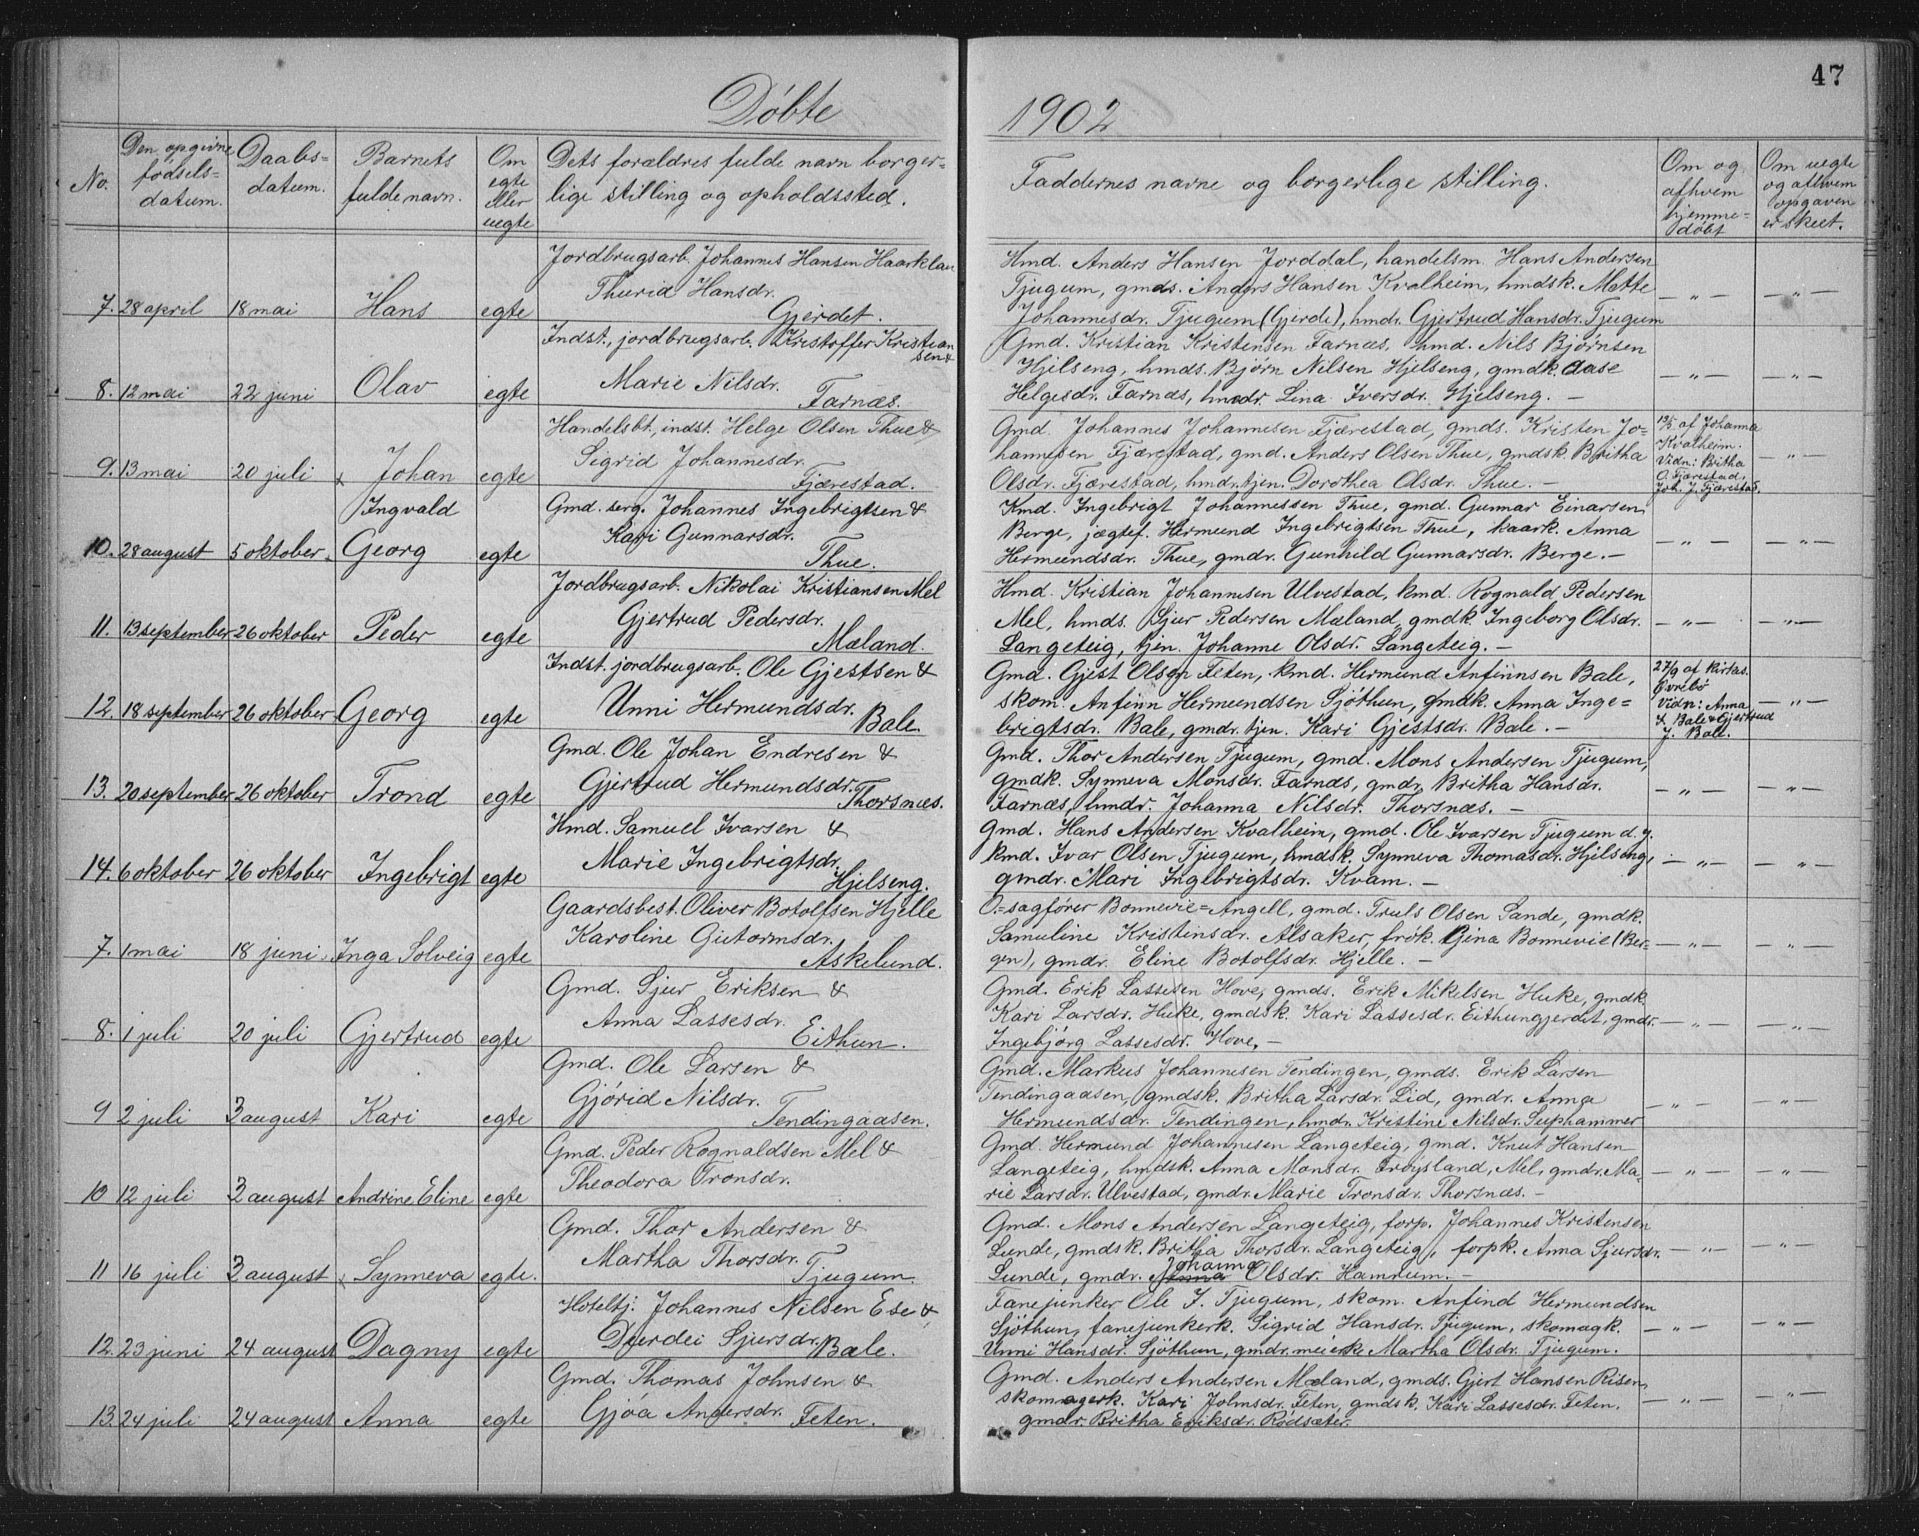 47
Døbte
1902
No.
Den opgivne
fødsels=
datum.
Daabs=
datum.
Barnets
fulde navn.
Om
egte
eller
uegte
Dets forældres fulde navn borger=
lige stilling og opholdssted.
Faddernes navne og borgerlige stilling.
Om og
afhvem
hjemme=
døbt
Om uegte
og afhvem
opgaven
er skeet.
Jordbrugsarb. Johannes Hansen Haarklau
Thurid Hansdr.
7. 28 april 18 mai Hans egte Gjerdet.
Hmd. Anders Hansen Jorddal, handelsm. Hans Andersen
Tjugum, gmds. Anders Hansen Kvalheim, hmdsk. Mette
Johannesdr. Tjugum (Gjerde), hmdr. Gjertrud Hansdr. Tjugum
— „ — — „ —
Indst., jordbrugsarb. Kristoffer Kristian
sen &
Marie Nilsdr.
8. 12 mai 22 juni Olav egte Farnæs.
Gmd. Kristian Kristensen Farnæs, hmd. Nils Bjørnsen
Hjelseng, hmds. Bjørn Nilsen Hjelseng, gmdk. Aase
Helgesdr. Farnæs, hmdr. Lina Iversdr. Hjelseng. —
— „ — — „ —
Handelsbt., indst. Helge Olsen Thue &
Sigrid Johannesdr.
9. 13 mai 20 juli x Johan egte Fjærestad.
Gmd. Johannes Johannesen Fjærestad, gmds. Kristen Jo=
hannesen Fjærestad, gmd. Anders Olsen Thue, gmdsk. Britha
Olsdr. Fjærestad, hmdr. tjen. Dorothea Olsdr. Thue. —
13/5 af Johanna
Kvalheim.
Vidn: Britha
O. Fjærestad,
Joh. J. Fjærestad.
— „ —
Ingvald
Gmd. serg. Johannes Ingebrigtsen &
Kari Gunnarsdr.
10. 28 august 5 oktober Georg egte Thue.
Kmd. Ingebrigt Johannessen Thue, gmd. Gunnar Einarsen
Berge, jægtef. Hermund Ingebrigtsen Thue, kaark. Anna
Hermundsdr. Thue, gmdr. Gunhild Gunnarsdr. Berge. —
— „ — — „ —
Jordbrugsarb. Nikolai Kristiansen Mel
Gjertrud Pedersdr.
11. 13 september 26 oktober Peder egte Mæland.
Hmd. Kristian Johannesen Ulvestad, kmd. Rognald Pedersen
Mel, hmds. Sjur Pedersen Mæland, gmdk. Ingeborg Olsdr.
Langeteig, tjen. Johanne Olsdr. Langeteig. —
— „ — — „ —
Indst. jordbrugsarb. Ole Gjestsen &
Unni Hermundsdr.
12. 18 september 26 oktober Georg egte Bale.
Gmd. Gjest Olsen Feten, kmd. Hermund Anfinnsen Bale,
skom. Anfinn Hermundsen Sjøthun, gmdk. Anna Inge=
brigtsdr. Bale, gmdr. tjen. Kari Gjestsdr. Bale. —
27/9 af Kirkes.
Øvrebø
Vidn: Anna
I. Bale & Gjertrud
J. Bale.
— „ —
Gmd. Ole Johan Endresen &
Gjertrud Hermundsdr.
13. 20 september 26 oktober Trond egte Thorsnæs.
Gmd. Thor Andersen Tjugum, gmd. Mons Andersen Tjugum,
gmdk. Synneva Monsdr. Farnæs, gmdr. Britha Hansdr.
Farnæs, hmdr. Johanna Nilsdr. Thorsnæs. —
— „ — — „ —
Hmd. Samuel Ivarsen &
Marie Ingebrigtsdr.
14. 6 oktober 26 oktober Ingebrigt egte Hjelseng.
Gmd. Hans Andersen Kvalheim, gmd. Ole Ivarsen Tjugum d.y.
kmd. Ivar Olsen Tjugum, hmdsk. Synneva Thomasdr. Hjelseng,
gmdr. Mari Ingebrigtsdr. Kvam. —
— „ — — „ —
Gaardsbest. Oliver Botolfsen Hjelle
Karoline Gutormsdr.
7. 1 mai 18 juni Inga Solveig egte Askelund.
O.=sagfører Bonnevie=Angell, gmd. Truls Olsen Sande, gmdk.
Samuline Kristensdr. Alsaker, frøk. Gina Bonnevie (Ber-
gen), gmdr. Eline Botolfsdr. Hjelle. —
— „ — — „ —
Gmd. Sjur Eriksen &
Anna Lassesdr.
8. 1 juli 20 juli Gjertrud egte Eithun.
Gmd. Erik Lassesen Hove, gmds. Erik Mikelsen Huke, gmdk.
Kari Larsdr. Huke, gmdsk. Kari Lassesdr. Eithungjerdet, gmdr.
Ingebjørg Lassesdr. Hove. —
— „ — — „ —
Gmd. Ole Larsen &
Gjørid Nilsdr.
9 2 juli 3 august Kari egte Tendingaasen.
Gmd. Markus Johannesen Tendingen, gmds. Erik Larsen
Tendingaasen, gmdsk. Britha Larsdr. Lid, gmdr. Anna
Hermundsdr. Tendingen, hmdr. Kristine Nilsdr. Suphammer
— „ — — „ —
Gmd. Peder Rognaldsen Mel &
Theodora Tronsdr.
10 12 juli 3 august Andrine Eline egte
Gmd. Hermund Johannesen Langeteig, gmd. Knut Hansen
Langeteig, hmdsk. Anna Monsdr. Frøysland, Mel, gmdr. Ma-
rie Larsdr. Ulvestad, gmdr. Marie Tronsdr. Thorsnæs. —
— „ — — „ —
Gmd. Thor Andersen &
Martha Thorsdr.
11 16 juli 3 august x Synneva egte. Tjugum
Gmd. Mons Andersen Langeteig, forp. Johannes Kristensen
Lunde, gmdsk. Britha Thorsdr. Langeteig, forpk. Anna Sjursdr.
Johanna
Lunde, gmdr. Anna Olsdr. Hamrum. —
— „ — — „ —
Hoteltj. Johannes Nilsen Ese &
Durdei Sjursdr.
12. 23 juni 24 august Dagny egte Bale.
Fanejunker Ole J. Tjugum, skom. Anfind Hermundsen
Sjøthun, fanejunkerk. Sigrid Hansdr. Tjugum, skomagk.
Unni Hansdr. Sjøthun, gmdr. meierk Martha Olsdr. Tjugum.
— „ — — „ —
Gmd. Thomas Johnsen &
Gjøa Andersdr.
13. 24 juli 24 august Anna egte Feten.
Gmd. Anders Andersen Mæland, gmds. Gjert Hansen Risen,
skomagerk. Kari Johnsdr. Feten, gmdsk. Kari Lassesdr. Feten.
gmdr. Britha Eriksdr. Rødsæter.
— „ — — „ —